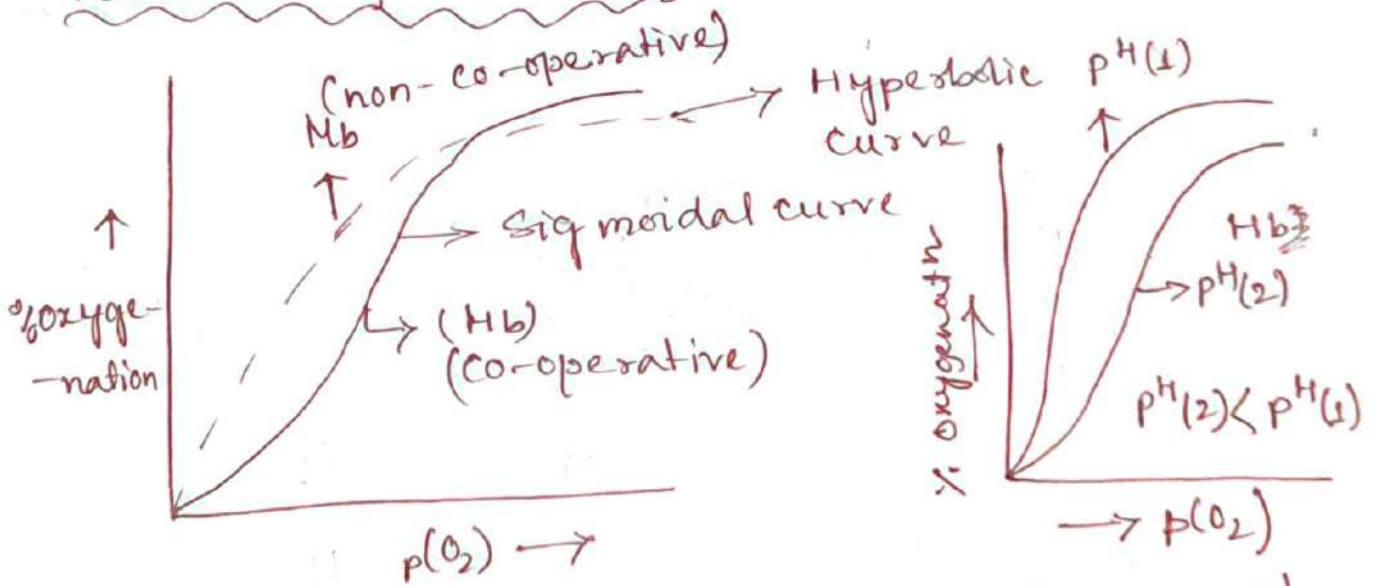 (non-co-operative)
Mb
Hyperbolic
curve
Sigmoidal curve
(Hb)
(co-operative)
%oxyge-
-nation
p(O₂) →
pᴴ(1)
Hb
→pᴴ(2)
pᴴ(2)< pᴴ(1)
% oxygenatn
→ p(O₂)